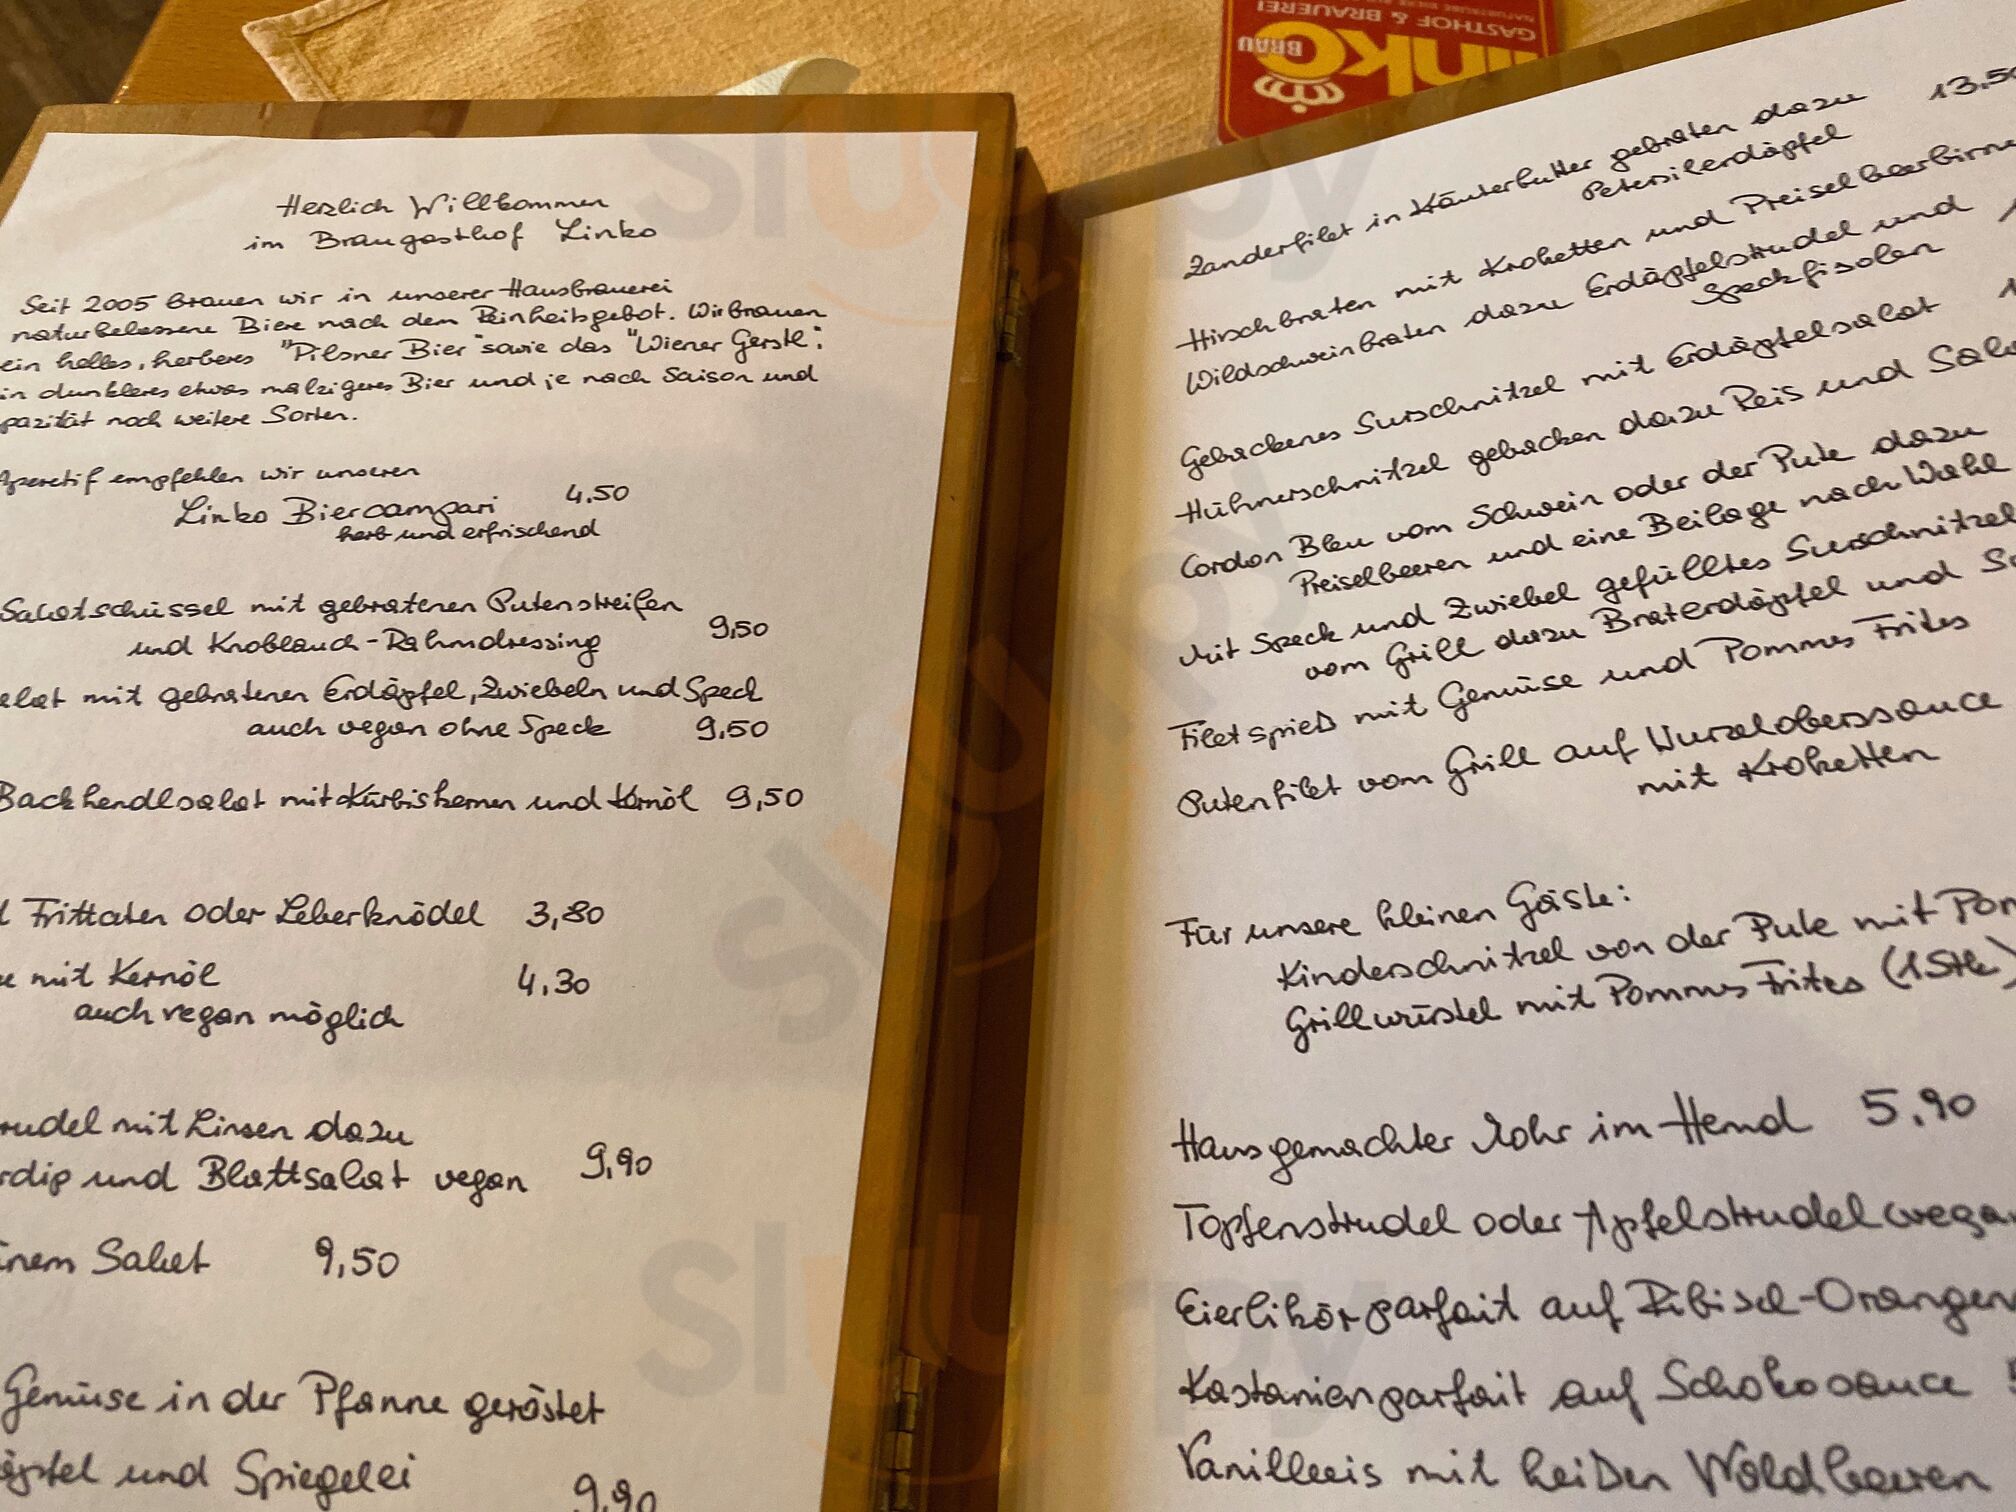 Herzlich Willkommen
im Braugasthof Linko
Seit 2005 brauen wir in unserer Hausbrauerei
naturbelassene Biere nach dem Reinheitsgebot. Wir brauen
ein helles, herberes "Pilsner Bier" sowie das "Wiener Gerstl":
in dunkleres etwas malzigeres Bier und je nach Saison und
pazität noch weitere Sorten.
Aperetif empfehlen wir unseren
Linko Biercampari 4.50
herb und erfrischend
Salatschüssel mit gebratenen Putenstreifen
und Knoblauch-Rahmdressing 9,50
elat mit gebratenen Erdäpfel, Zwiebeln und Speck
auch vegan ohne Speck 9,50
Backhendlsalat mit Kürbiskernen und Kernöl 9,50
d Frittaten oder Leberknödel 3,80
e mit Kernöl 4,30
auch vegan möglich
rudel mit Linsen dazu
rdip und Blattsalat vegan 9,90
inem Salat 9,50
Gemüse in der Pfanne geröstet
äpfel und Spiegelei 9,90
GASTHOF & BRAUEREI
BRÄU
inko
Zanderfilet in Kräuterbutter gebraten dazu 13,50
Petersilerdäpfel
Hirschbraten mit Kroketten und Preiselbeerbirne
Wildschweinbraten dazu Erdäpfelstrudel und
Speckfisolen
Gebackenes Surschnitzel mit Erdäpfelsalat
Hühnerschnitzel gebacken dazu Reis und Sala
Cordon Bleu vom Schwein oder der Pute dazu
Preiselbeeren und eine Beilage nach Wahl
Mit Speck und Zwiebel gefülltes Surschnitzel
vom Grill dazu Braterdäpfel und Sa
Filetspieß mit Gemüse und Pommes Frites
Putenfilet vom Grill auf Wurzelobers­sauce
mit Kroketten
Für unsere kleinen Gäste:
Kinderschnitzel von der Pute mit Pom
Grillwürstel mit Pommes Frites (1 Stk)
Hausgemachter Mohr im Hemd 5,90
Topfenstrudel oder Apfelstrudel vegan
Eierlikörparfait auf Ribisel-Orangen
Kastanienparfait auf Schokosauce
Vanilleeis mit heißen Waldbeeren
slurpy
slurpy
slurpy
slurpy